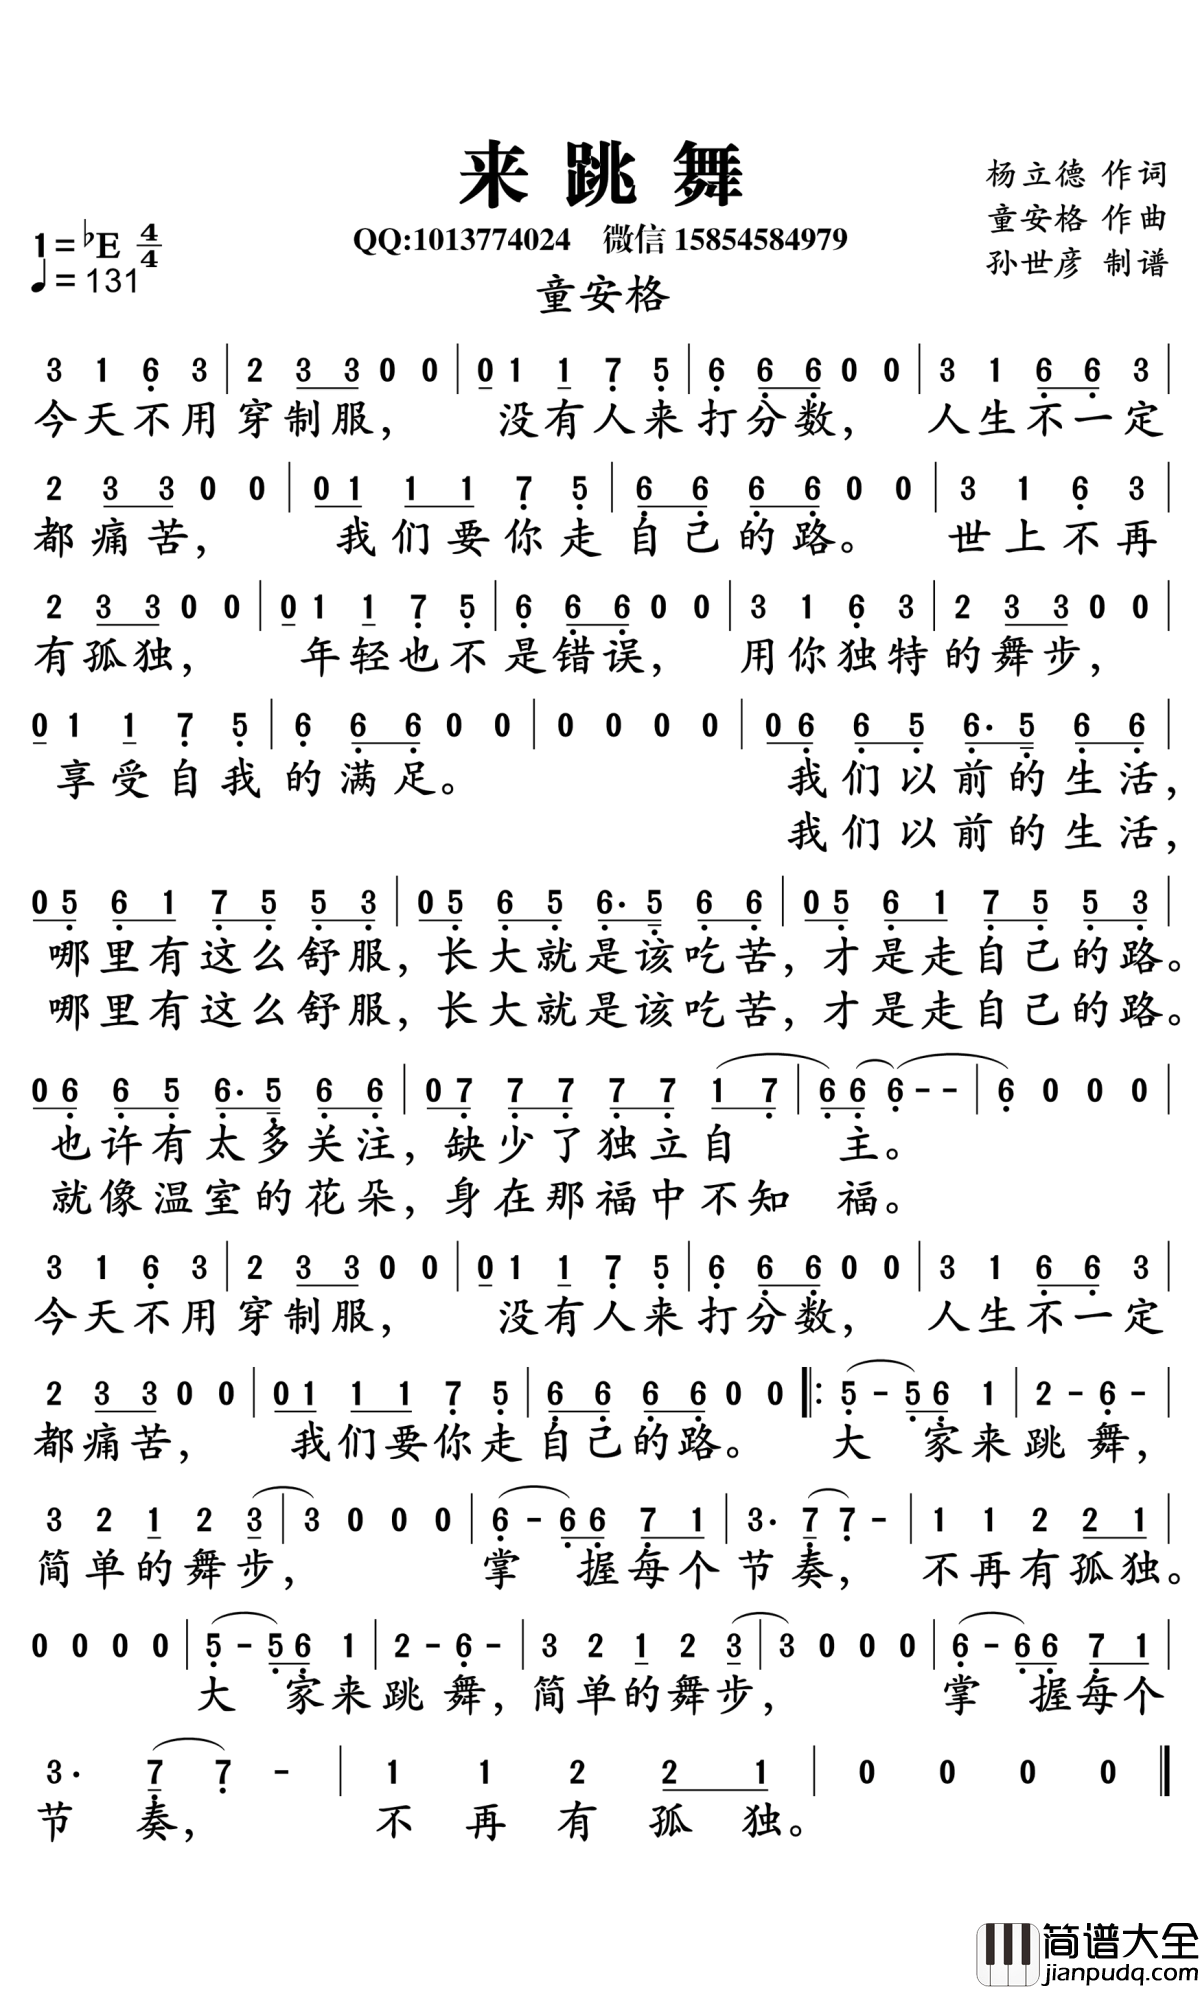 来跳舞
杨立德 作词
童安格 作曲
孙世彦 制谱
1=♭E 4/4
♩=131
QQ:1013774024 微信 15854584979
童安格
3 1 6 3 | 2 3 3 0 0 | 0 1 1 7 5 | 6 6 6 0 0 | 3 1 6 6 3 |
今天不用穿制服， 没有人来打分数， 人生不一定
2 3 3 0 0 | 0 1 1 1 7 5 | 6 6 6 6 0 0 | 3 1 6 3
都痛苦， 我们要你走自己的路。 世上不再
2 3 3 0 0 | 0 1 1 7 5 | 6 6 6 0 0 | 3 1 6 3 | 2 3 3 0 0 |
有孤独， 年轻也不是错误， 用你独特的舞步，
0 1 1 7 5 | 6 6 6 0 0 | 0 0 0 0 | 0 6 6 5 6· 5 6 6 |
享受自我的满足。 我们以前的生活，
我们以前的生活，
0 5 6 1 7 5 5 3 | 0 5 6 5 6· 5 6 6 | 0 5 6 1 7 5 5 3 |
哪里有这么舒服，长大就是该吃苦，才是走自己的路。
哪里有这么舒服，长大就是该吃苦，才是走自己的路。
0 6 6 5 6· 5 6 6 | 0 7 7 7 7 7 1 7 | 6 6 6 - - | 6 0 0 0 |
也许有太多关注，缺少了独立自 主。
就像温室的花朵，身在那福中不知 福。
3 1 6 3 | 2 3 3 0 0 | 0 1 1 7 5 | 6 6 6 0 0 | 3 1 6 6 3 |
今天不用穿制服， 没有人来打分数， 人生不一定
2 3 3 0 0 | 0 1 1 1 7 5 | 6 6 6 6 0 0 ‖: 5 - 5 6 1 | 2 - 6 - |
都痛苦， 我们要你走自己的路。 大 家来跳舞，
3 2 1 2 3 | 3 0 0 0 | 6 - 6 6 7 1 | 3· 7 7 - | 1 1 2 2 1 |
简单的舞步， 掌 握每个节奏， 不再有孤独。
0 0 0 0 | 5 - 5 6 1 | 2 - 6 - | 3 2 1 2 3 | 3 0 0 0 | 6 - 6 6 7 1 |
大 家来跳舞，简单的舞步， 掌 握每个
3· 7 7 - | 1 1 2 2 1 | 0 0 0 0 ‖
节 奏， 不再有孤独。
简谱大全
jianpudq.com